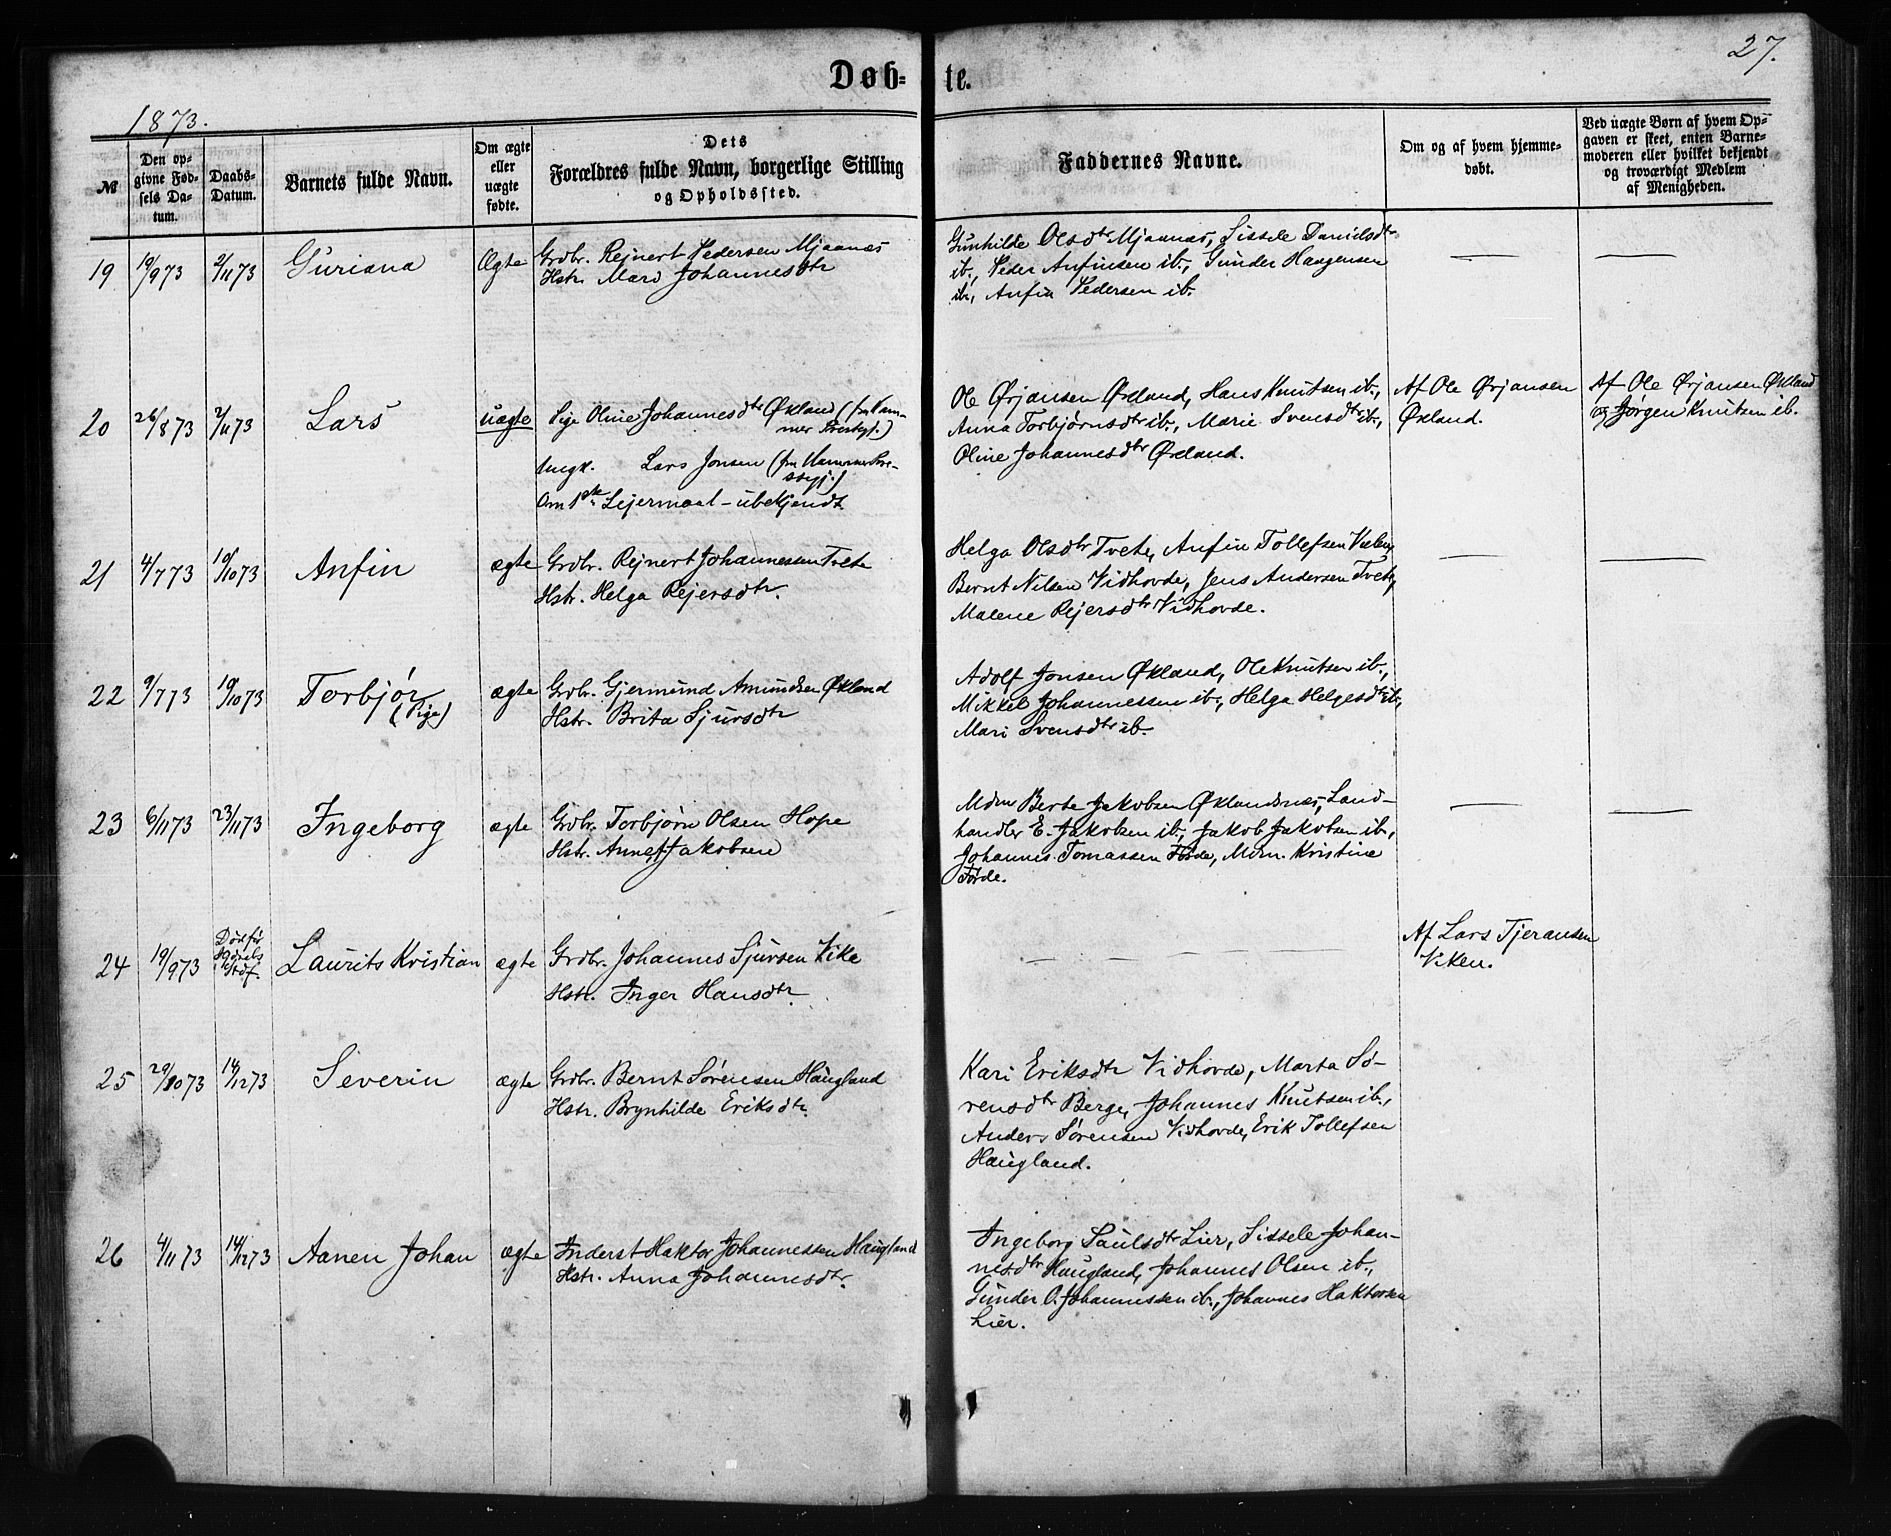 27.
Døb-te.
1873.
№
Den op-
givne Fød-
sels Da-
tum.
Daabs-
Datum.
Barnets fulde Navn.
Om ægte
eller
uægte
fødte.
Dets
Forældres fulde Navn, borgerlige Stilling
og Opholdssted.
Faddernes Navne.
Om og af hvem hjemme-
døbt.
Ved uægte Børn af hvem Op-
gaven er skeet, enten Barne-
moderen eller hvilket bekjendt
og troværdigt Medlem
af Menigheden.
19 19/9 73 2/11 73 Guriana Ægte Grdbr. Rejnert Pedersen Mjaanæs
Hstr. Mari Johannesdtr
Gunhilde Olsdtr Mjaanæs, Sissele Danielsdtr
ib., Peder Anfinsen ib., Gunder Haagensen
ib., Anfin Pedersen ib.
20 26/8 73 2/11 73 Lars uægte Pige Oline Johannesdtr Økland (fra Kam-
mer Prestegj.)
Ungk. Lars Jonsen
Om 1ste Lejermaal - ubekjendt
Ole Ørjansen Økland, Hans Knutsen ib.,
Anna Torbjørnsdtr ib., Marie Svensdtr ib.,
Oline Johannesdtr Økland.
Af Ole Ørjansen
Økland.
Af Ole Ørjansen Økland
og Jørgen Knutsen ib.
21 4/7 73 19/10 73 Anfin ægte Grdbr. Rejnert Johannessen Tveta
Hstr. Helga Rejersdtr.
Helga Olsdtr Tveta, Anfin Tollefsen
Bernt Nilsen Vidhovde, Jens Andersen Tveta,
Malene Rejersdtr Vidhovde.
22 9/7 73 19/10 73 Torbjør
(Pige)
ægte Grdbr. Gjermund Amundsen Økland
Hstr. Brita Sjursdtr
Adolf Jonsen Økland, Ole Knutsen ib.,
Mikkel Johannessen ib., Helga Helgesdtr ib.,
Mari Svensdtr ib.
23 6/11 73 23/11 73 Ingeborg ægte Grdbr. Torbjørn Olsen Hope
Hstr. Anne J. Jakobsen
Mdm Berte Jakobsen Øklandsnæs, Land-
handler E. Jakobsen ib., Jakob Jakobsen ib.,
Johannes Tomassen Førde, Mdm. Kristine
Førde.
24 19/9 73 Død før
Laurits Kristian ægte Grdbr. Johannes Sjursen Vike
Hstr. Inger Hansdtr.
Af Lars Tjeransen
Viken.
25 29/10 73 14/12 73 Severin ægte Grdbr. Bernt Sørensen Haugland
Hstr. Brynhilde Eriksdtr.
Kari Eriksdtr Vidhovde, Marta Sø-
rensdtr Berge, Johannes Knutsen ib.,
Anders Sørensen Vidhovde, Erik Tollefsen
Haugland.
26 4/11 73 14/12 73 Aanen Johan ægte Inderst Haktor Johannessen Haugland
Hstr. Anna Johannesdtr.
Ingeborg Paulsdtr Lier, Sissele Johan-
nesdtr Haugland, Johannes Olsen ib.,
Gunder O. Johannessen ib., Johannes Haktorsen
Lier.